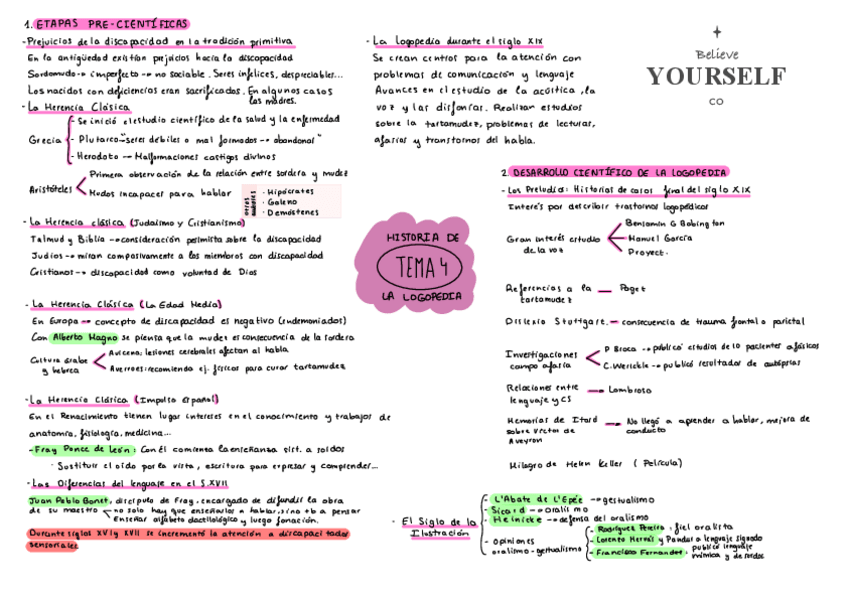 1. ETAPAS PRE-CIENTÍFICAS
- Prejuicios de la discapacidad en la tradición primitiva
En la antigüedad existían prejuicios hacia la discapacidad
Sordomudo → imperfecto → no sociable. Seres infelices, despreciables...
Los nacidos con deficiencias eran sacrificados. En algunos casos
las madres.
- La Herencia Clásica
Grecia
- Se inició el estudio científico de la salud y la enfermedad
- Plutarco → "seres débiles o mal formados → abandonal"
- Herodoto → Malformaciones castigos divinos
Aristóteles
Primera observación de la relación entre sordera y mudez
Mudos incapaces para hablar
otros autores
· Hipócrates
· Galeno
· Demóstenes
- La Herencia clásica (Judaísmo y Cristianismo)
Talmud y Biblia → consideración pesimista sobre la discapacidad
Judíos → miran compasivamente a los miembros con discapacidad
Cristianos → discapacidad como voluntad de Dios
- La Herencia Clásica (La Edad Media)
En Europa → concepto de discapacidad es negativo (endemoniados)
Con Alberto Magno se piensa que la mudez es consecuencia de la sordera
Cultura árabe y hebrea
Avicena: lesiones cerebrales afectan al habla
Averroes: recomienda ej. físicos para curar tartamudez
- La Herencia Clásica (Impulso español)
En el Renacimiento tienen lugar intereses en el conocimiento y trabajos de
anatomía, fisiología, medicina...
- Fray Ponce de León: Con él comienta la enseñanza sist. a sordos
· Sustituir el oído por la vista, escritura para expresar y comprender...
- Las Diferencias del lenguaje en el S.XVII
Juan Pablo Bonet, discípulo de Fray, encargado de difundir la obra
de su maestro
no solo hay que enseñarlos a hablar, sino tb a pensar
Enseñar alfabeto dactilológico y luego fonación.
Durante siglos XVI y XVII se incrementó la atención a discapacitados
sensoriales
- La logopedia durante el siglo XIX
Se crean centros para la atención con
problemas de comunicación y lenguaje
Avances en el estudio de la acústica, la
voz y las disfonías. Realizan estudios
sobre la tartamudez, problemas de lecturas,
afasias y transtornos del habla.
Believe
YOURSELF
CO
HISTORIA DE
TEMA 4
LA LOGOPEDIA
2. DESARROLLO CIENTÍFICO DE LA LOGOPEDIA
- Los Preludios: Historias de casos final del siglo XIX
Interés por describir trastornos logopédicos
Gran interés estudio
de la voz
Benjamin G Babington
Manuel García
Proyect.
Referencias a la — Paget
tartamudez
Dislexia Stuttgart. — consecuencia de trauma frontal o parietal
Investigaciones
campo afasia
P Broca → publicó estudios de 10 pacientes afásicos
C. Wernicke → publicó resultados de autopsias
Relaciones entre → Lombroso
lenguaje y CS
Memorias de Itard → No llegó a aprender a hablar, mejora de
sobre Víctor de conducto
Aveyron
Milagro de Helen Keller (Película)
- El Siglo de la
Ilustración
- L'Abate de L'Epée → gestualismo
- Sicard → oralismo
- Heinicke → defensa del oralismo
- opiniones
oralismo - gestualismo
- Rodríguez Pereira: fiel oralista
- Lorenzo Hervás y Panduro lenguaje signado
- Francisco Fernandez: publicó lenguaje
mímica y de sordos